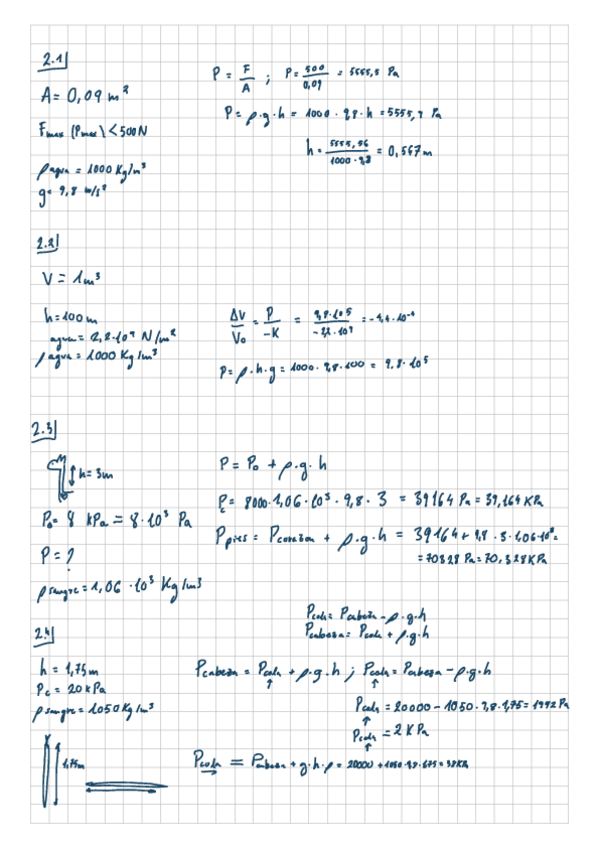 2.1
A = 0,09 m²
Fmax (Pmax) < 500N
ρ agua = 1000 Kg/m³
g = 9,8 m/s²
P = F/A ; P = 500/0,09 = 5555,5 Pa
P = ρ.g.h = 1000 . 9,8 . h = 5555,5 Pa
h = 5555,56/1000 . 9,8 = 0,567m
2.2
V = 1m³
h = 100 m
agua = 2,2.10⁹ N/m²
ρ agua = 1000 Kg/m³
ΔV/V₀ = P/-K = 9,8.10⁵/-2,2.10⁹ = -4,4.10⁻⁴
P = ρ.h.g = 1000 . 9,8.100 = 9,8.10⁵
2.3
h = 3m
P₀ = 8 kPa = 8.10³ Pa
P = ?
ρ sangre = 1,06 .10³ Kg/m³
P = P₀ + ρ.g.h
Pc = 8000.1,06.10³.9,8.3 = 39164 Pa = 39,164 KPa
Ppies = Pcorazon + ρ.g.h = 39164 + 9,8.3.1,06.10³=
= 70328 Pa = 70,328 KPa
2.4
h = 1,75m
Pc = 20 kPa
ρ sangre = 1050 Kg/m³
1,75m
Pcola = Pcabeza - ρ.g.h
Pcabeza = Pcola + ρ.g.h
Pcabeza = Pcola + ρ.g.h ; Pcola = Pcabeza - ρ.g.h
Pcola = 20000 - 1050.9,8.1,75 = 1992 Pa
Pcola = 2 KPa
Pcola = Pcabeza + g.h.ρ = 20000 + 1050 .9,8